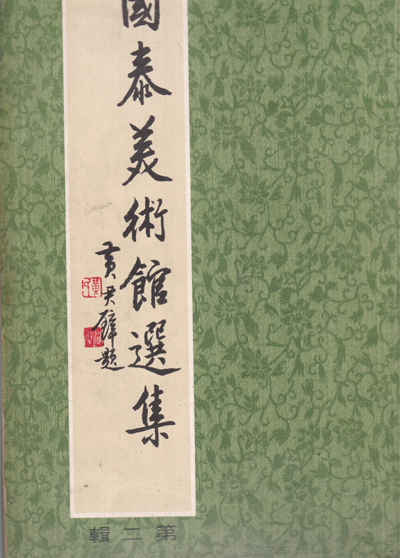 國泰美術館選集
黃君璧題
第二輯